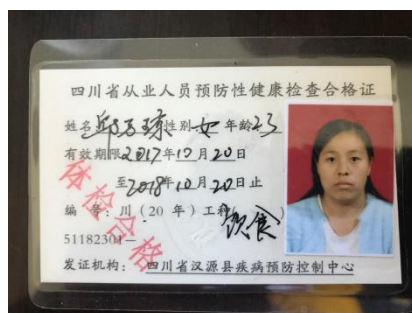 四川省从业人员预防性健康检查合格证
姓名邱万琼性别女年龄23
有效期限2017年10月20日
至2018年10月20日止
编号:川(20 年)工种(饮食)
51182301—
发证机构:四川省汉源县疾病预防控制中心
体检合格